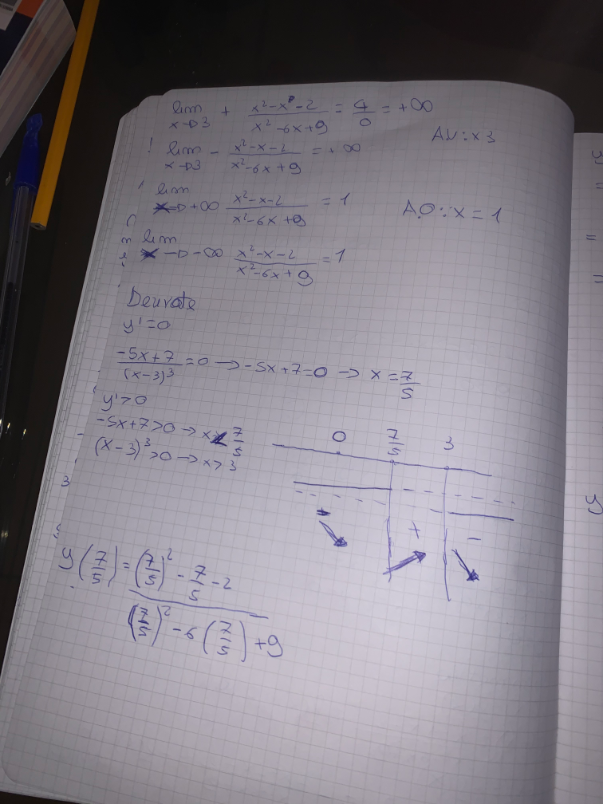 lim x→3 + (x²-x-2)/(x²-6x+9) = 4/0 = +∞
AV: x 3
lim x→3 - (x²-x-2)/(x²-6x+9) = +∞
lim x→+∞ (x²-x-2)/(x²-6x+9) = 1
A.O: x = 1
lim x→-∞ (x²-x-2)/(x²-6x+9) = 1
Derivate
y'=0
(-5x+7)/(x-3)³ = 0 → -5x+7=0 → x = 7/5
y'>0
-5x+7>0 → x< 7/5
(x-3)³>0 → x>3
0 7/5 3
- + -
y(7/5) = ((7/5)² - 7/5 - 2)/((7/5)² - 6(7/5) + 9)